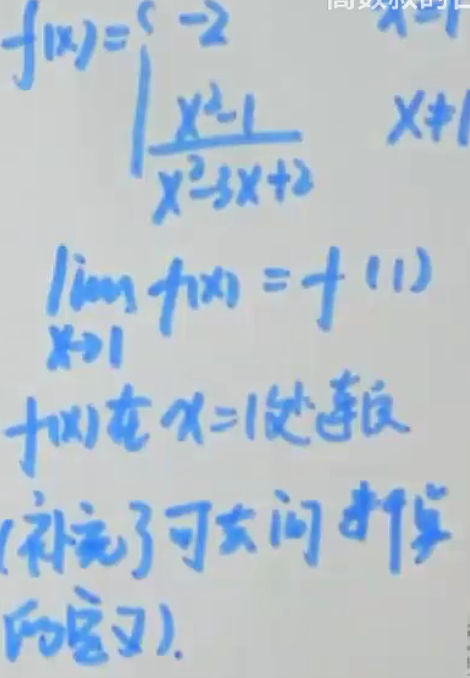 f(x)={ -2 x=1
x²-1 / x²-3x+2 x≠1
lim f(x) = f(1)
x→1
f(x)在 x=1处连续
(补充了可去间断点
的定义).